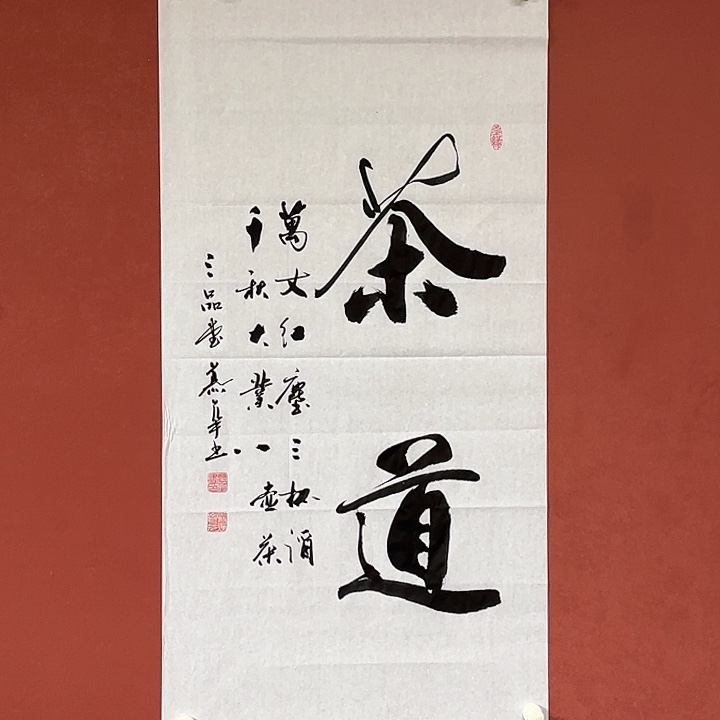 茶道
萬丈紅塵三杯酒
千秋大業一壺茶
三品堂